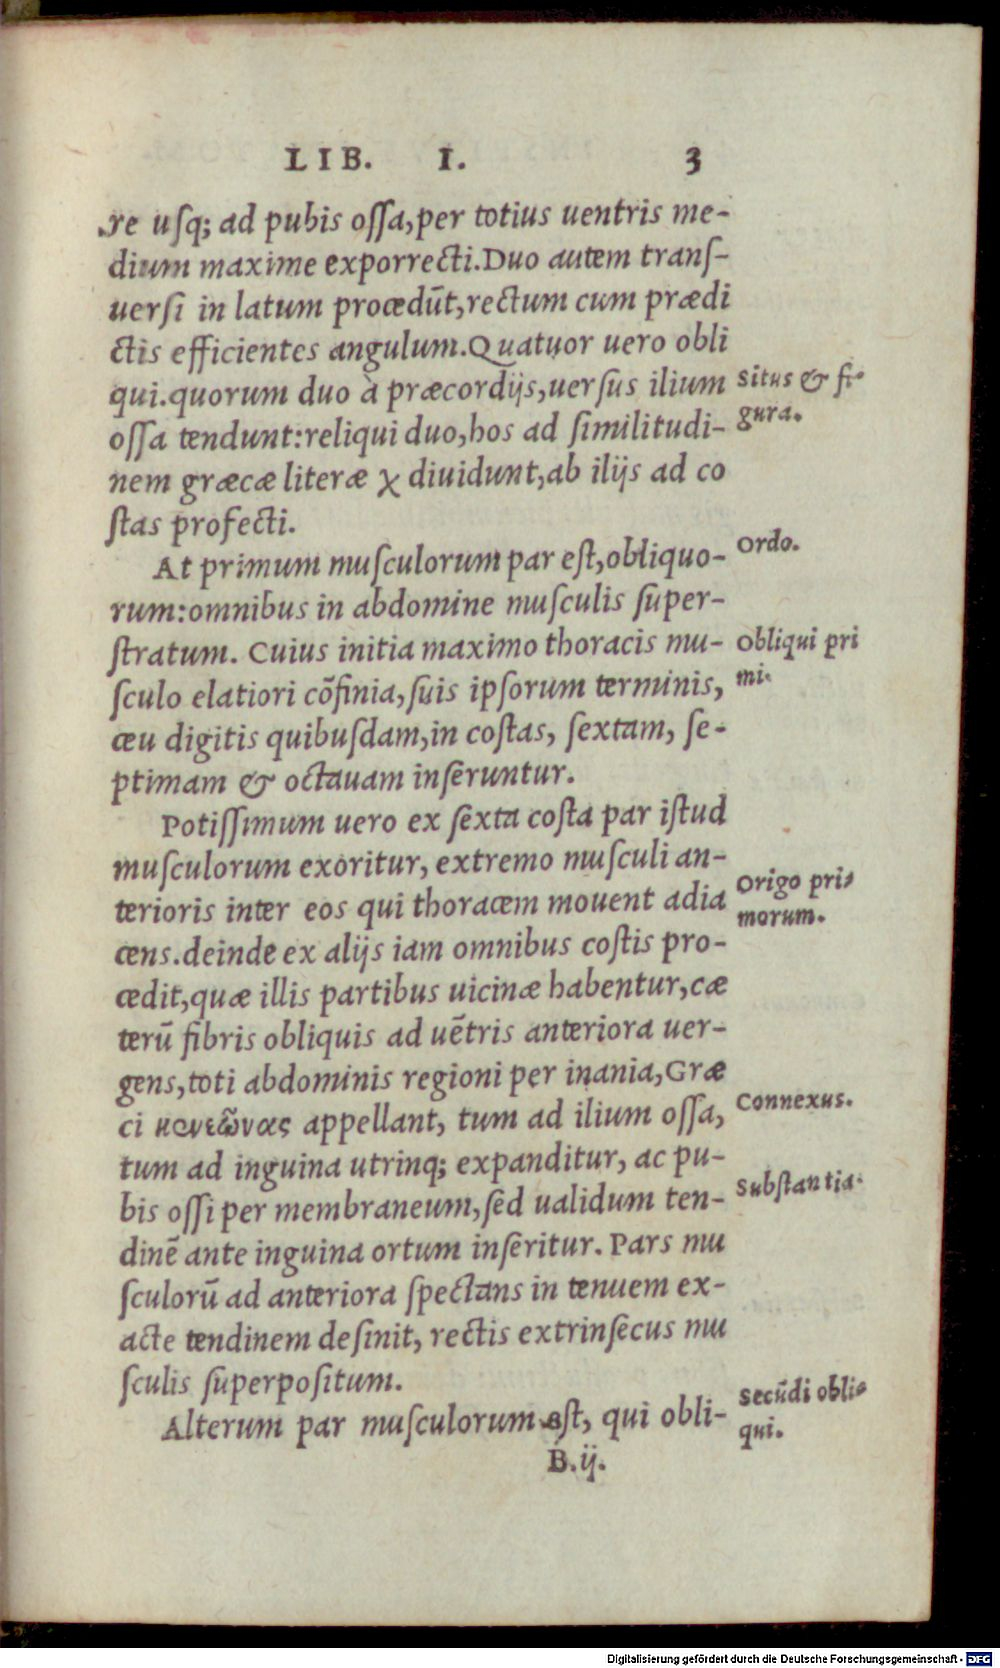 LIB. I. 3
re usq; ad pubis ossa, per totius uentris me-
dium maxime exporrecti. Duo autem trans-
uersi in latum procedũt, rectum cum prædi
ctis efficientes angulum. Quatuor uero obli
qui. quorum duo à præcordijs, uersus ilium
Situs & fi-
ossa tendunt: reliqui duo, hos ad similitudi-
gura.
nem græcæ literæ χ diuidunt, ab ilijs ad co
stas profecti.
At primum musculorum par est, obliquo-
Ordo.
rum: omnibus in abdomine musculis super-
stratum. Cuius initia maximo thoracis mu-
Obliqui pri
sculo elatiori cõfinia, suis ipsorum terminis,
mi.
ceu digitis quibusdam, in costas, sextam, se-
ptimam & octauam inseruntur.
Potissimum uero ex sexta costa par istud
musculorum exoritur, extremo musculi an-
terioris inter eos qui thoracem mouent adia
Origo pri-
morum.
cens. deinde ex alijs iam omnibus costis pro-
cedit, quæ illis partibus uicinæ habentur, cæ
terũ fibris obliquis ad uẽtris anteriora uer-
gens, toti abdominis regioni per inania, Græ
ci κενεῶνας appellant, tum ad ilium ossa,
Connexus.
tum ad inguina utrinq; expanditur, ac pu-
bis ossi per membraneum, sed ualidum ten-
Substantia.
dinẽ ante inguina ortum inseritur. Pars mu
sculorũ ad anteriora spectans in tenuem ex-
acte tendinem desinit, rectis extrinsecus mu
sculis superpositum.
Alterum par musculorum est, qui obli-
Secũdi obli-
qui.
B.ij.
Digitalisierung gefördert durch die Deutsche Forschungsgemeinschaft - DFG